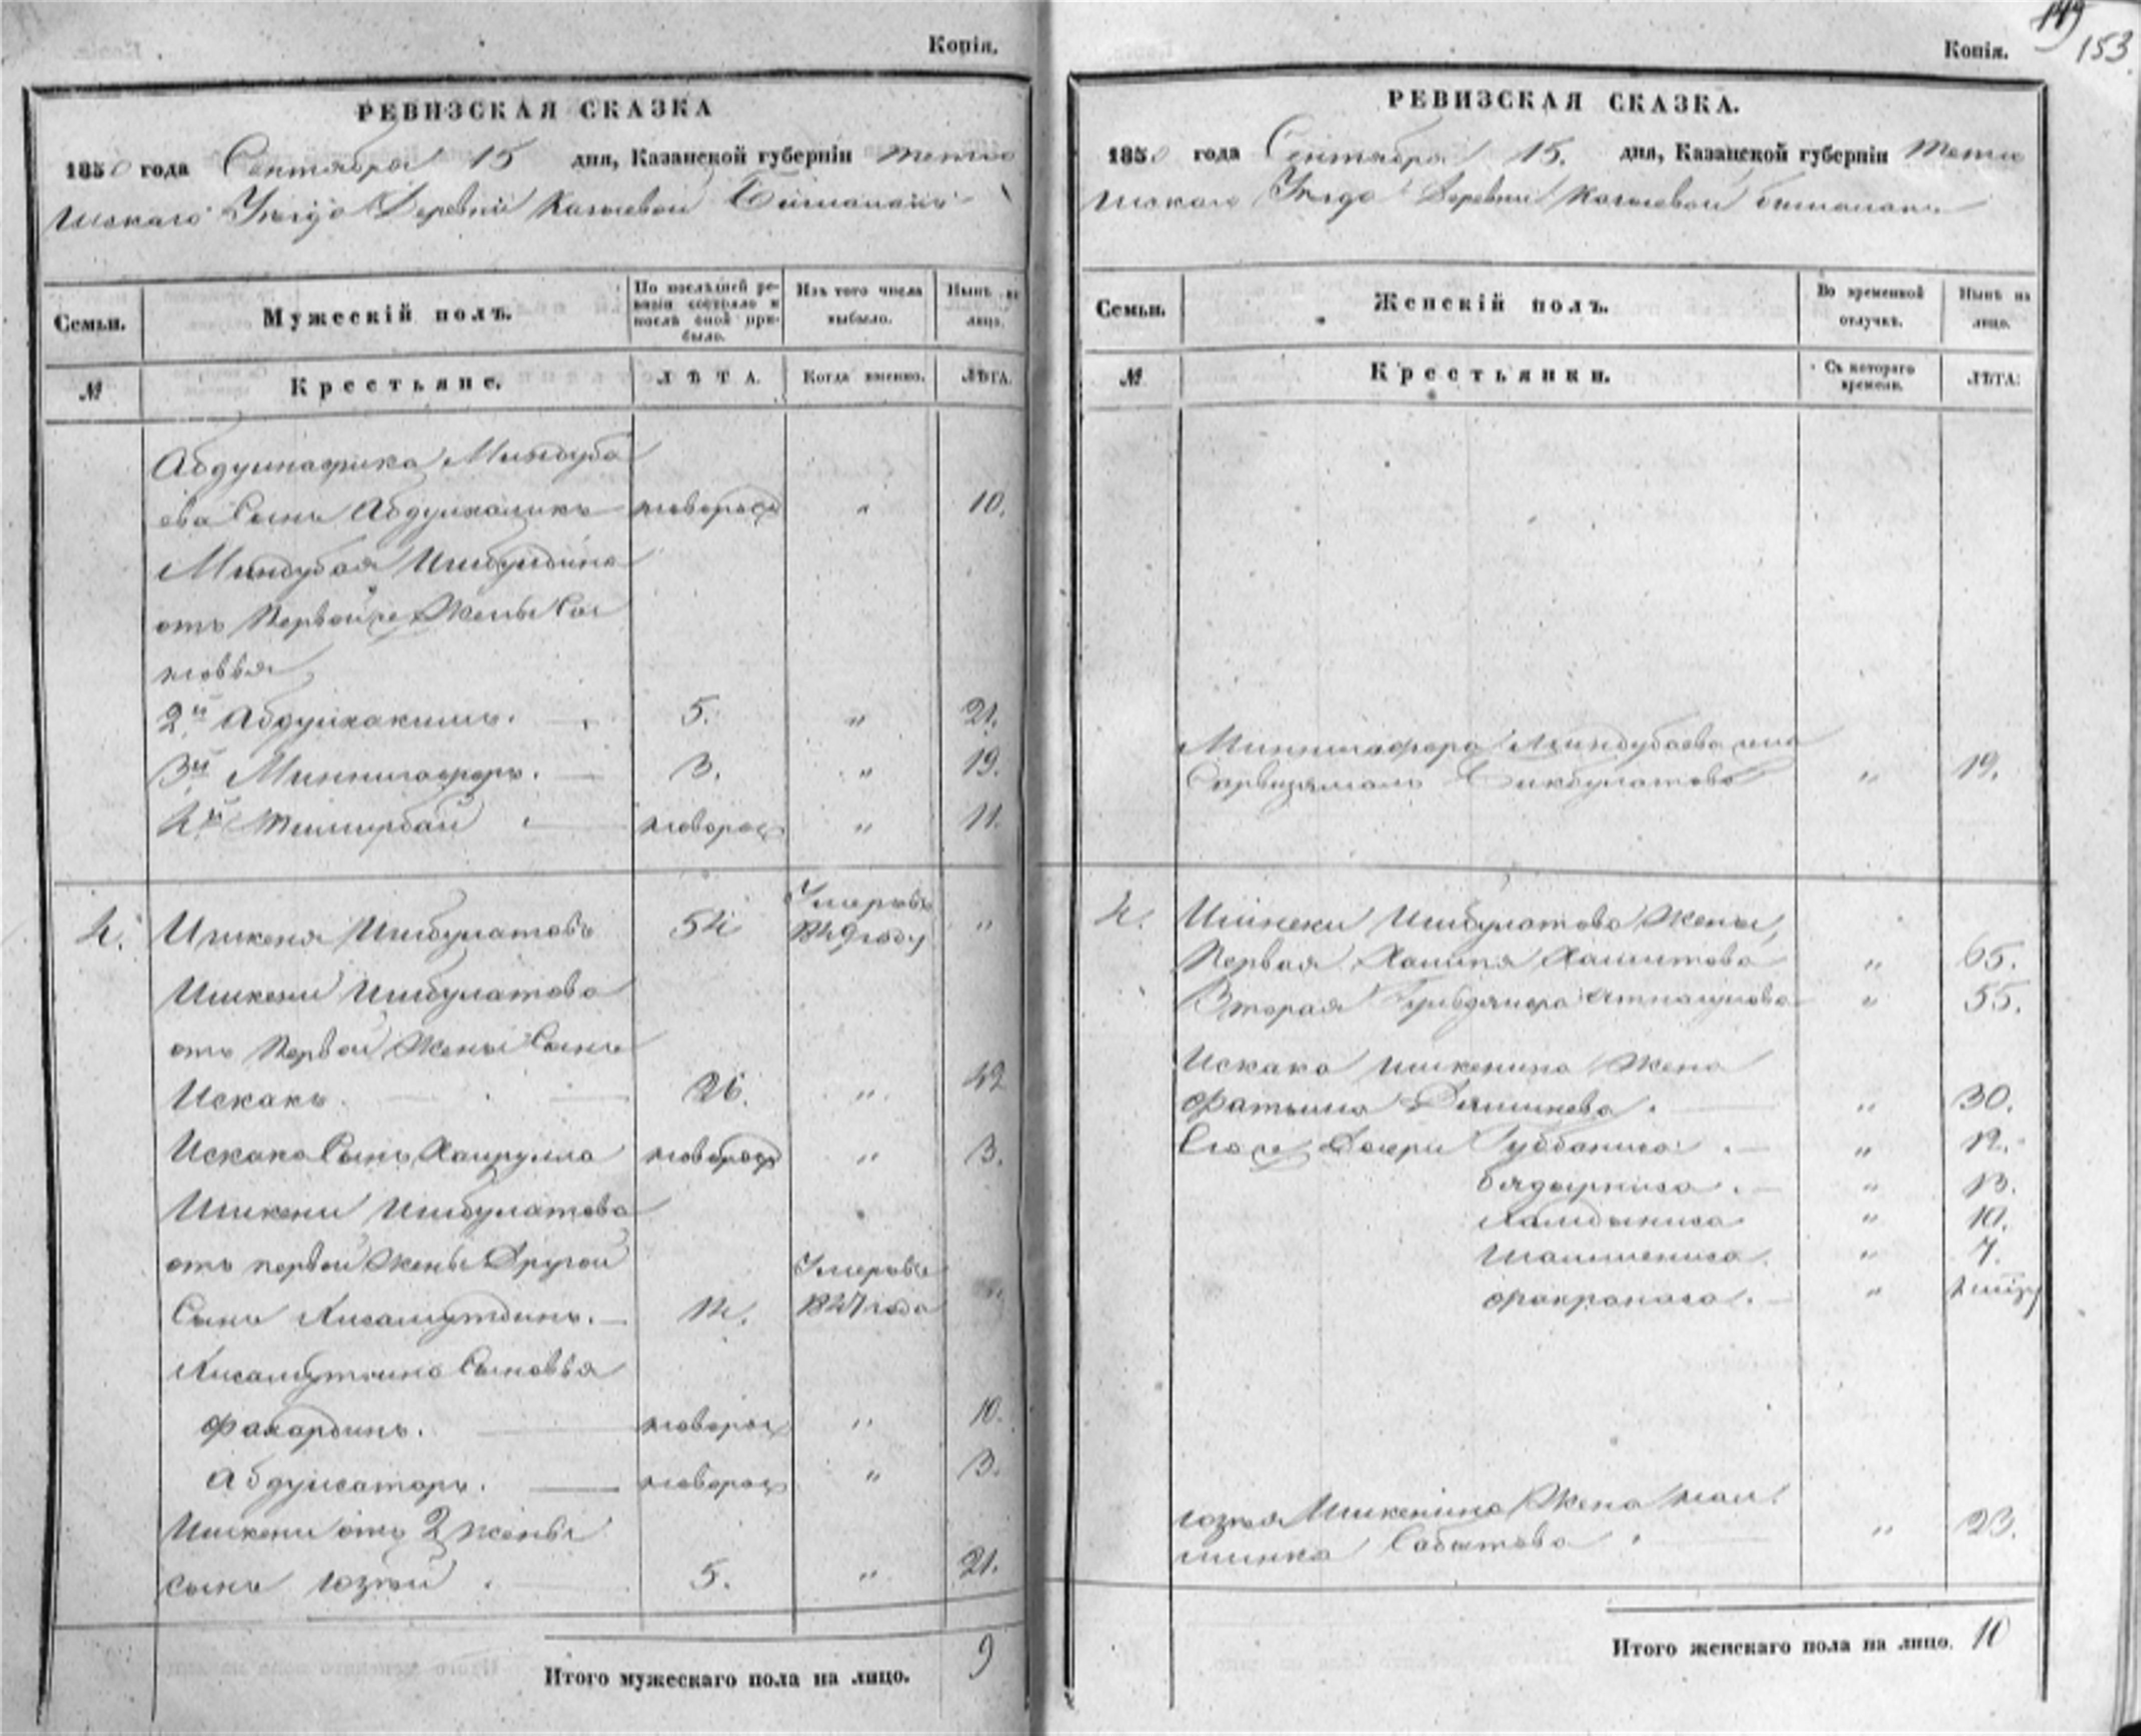 Копія.
РЕВИЗСКАЯ СКАЗКА
1850 года Сентября 15 дня, Казанской губерніи Тетю
шскаго Уезда Деревни
Семьи.
Мужескій полъ.
По послѣдней ре-
визіи состояло и
послѣ оной при-
было.
Изъ того числа
выбыло.
Нынѣ на
лицо.
№
Крестьяне.
ЛѢТА.
Когда именно.
ЛѢТА.
Абдулнафика Миндуба
ева Сынъ Абдулхаликъ новорож " 10.
Миндубая Ишбулдина
отъ Первой же Жены Сы
новья
2й Абдулхакимъ. 5. " 21.
3й Миннигафаръ. 3. " 19.
4й Тимирбай новорож " 11.
4. Ишкеня Ишбулатовъ 54 Умеръ въ
1849 году "
Ишкени Ишбулатова
отъ Первой Жены Сынъ
Искакъ. 26. " 42
Искака Сынъ Хайрулла новорож " 3.
Ишкени Ишбулатова
отъ первой Жены Другой
Сынъ Хисамутдинъ. 14. Умеръ въ
1847 года
Хисамутдина Сыновья
Фахардинъ. новорож " 10.
Абдулсатаръ. новорож " 3.
Ишкени отъ 2 жены
сынъ Юзей 5. " 21.
Итого мужескаго пола на лицо. 9
149
153.
Копія.
РЕВИЗСКАЯ СКАЗКА.
1850 года Сентября 15. дня, Казанской губерніи Тетю
шскаго Уезда Деревни
Семьи.
Женскій полъ.
Во временной
отлучкѣ.
Нынѣ на
лицо.
№
Крестьянки.
Съ котораго
времени.
ЛѢТА.
Миннигафара Миндубаева жена
Сарвизямалъ Бикбулатова " 19.
4. Ишкени Ишбулатова Жены,
Первая Халитова " 65.
Вторая " 55.
Искака Ишкенина Жена
Фатыма " 30.
Его же Дочери " 12.
Бядырниса. " 13.
" 10.
" 7.
"
Юзея Ишкенина Жена
Сабитова " 23.
Итого женскаго пола на лицо. 10